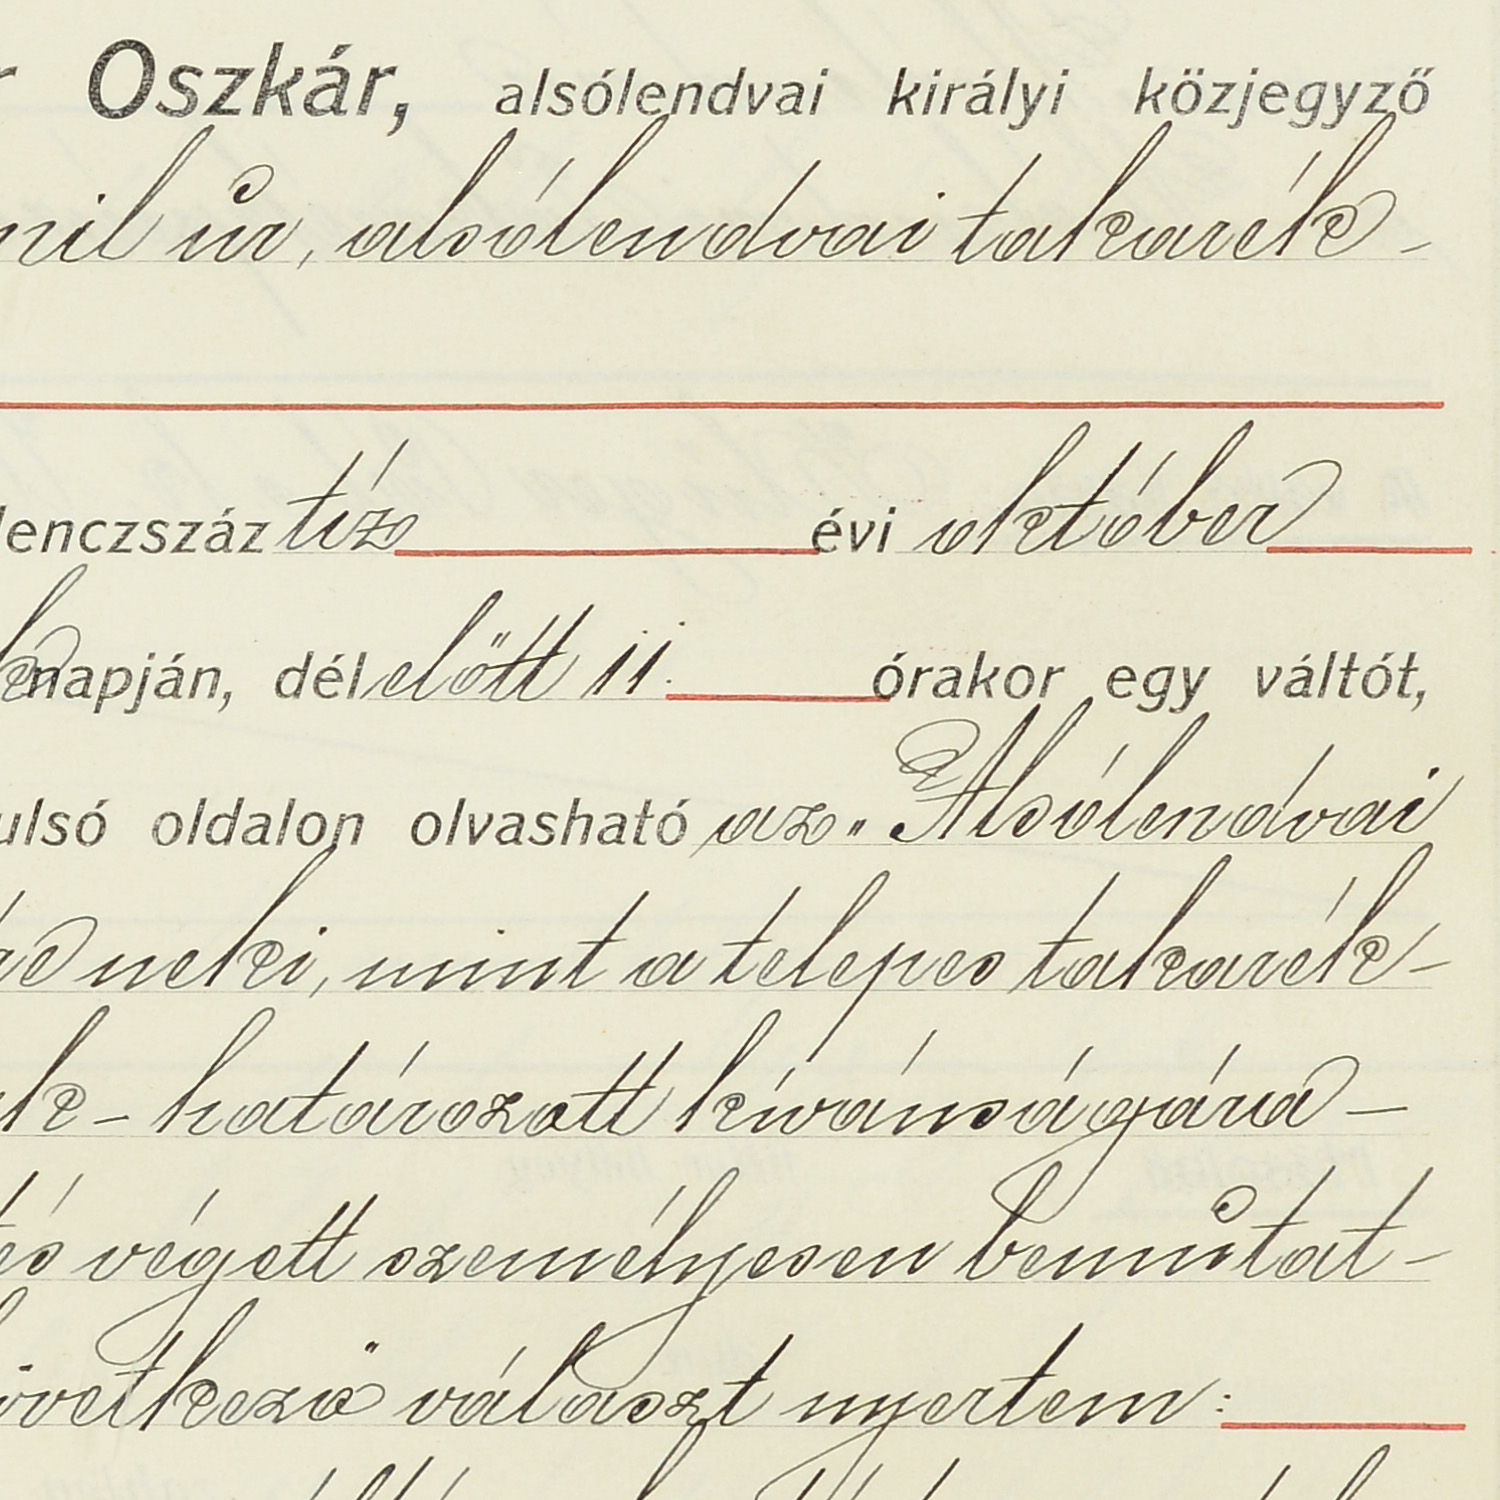 r Oszkár, alsólendvai királyi közjegyző
mil úr, alsólendvai takarék-
lenczszáz tíz évi október
k napján, délelőtt 11. órakor egy váltót,
ulsó oldalon olvasható az „Alsólendvai
neki, mint a telepes takarék-
k- határozott kívánságára -
tés végett személyesen bemutat-
övetkező választ nyertem: